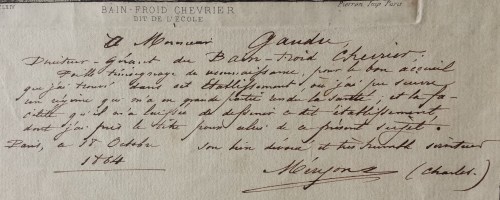 BAIN-FROID CHEVRIER
DIT DE L'ÉCOLE
Pierron Imp Paris
A Monsieur Gaudu,
Directeur-Gérant du Bain-froid Chevrier.
Faible témoignage de reconnaissance, pour le bon accueil
que j'ai trouvé dans cet établissement où j'ai pu suivre
un régime qui m'a en grande partie rendu la santé, et la fa-
cilité qu'il m'a laissée de dessiner à dit établissement
dont j'ai pris le titre pour celui de ce présent sujet.
Paris, a 18 Octobre son bien dévoué et très humble serviteur
1864 Méryon (Charles)